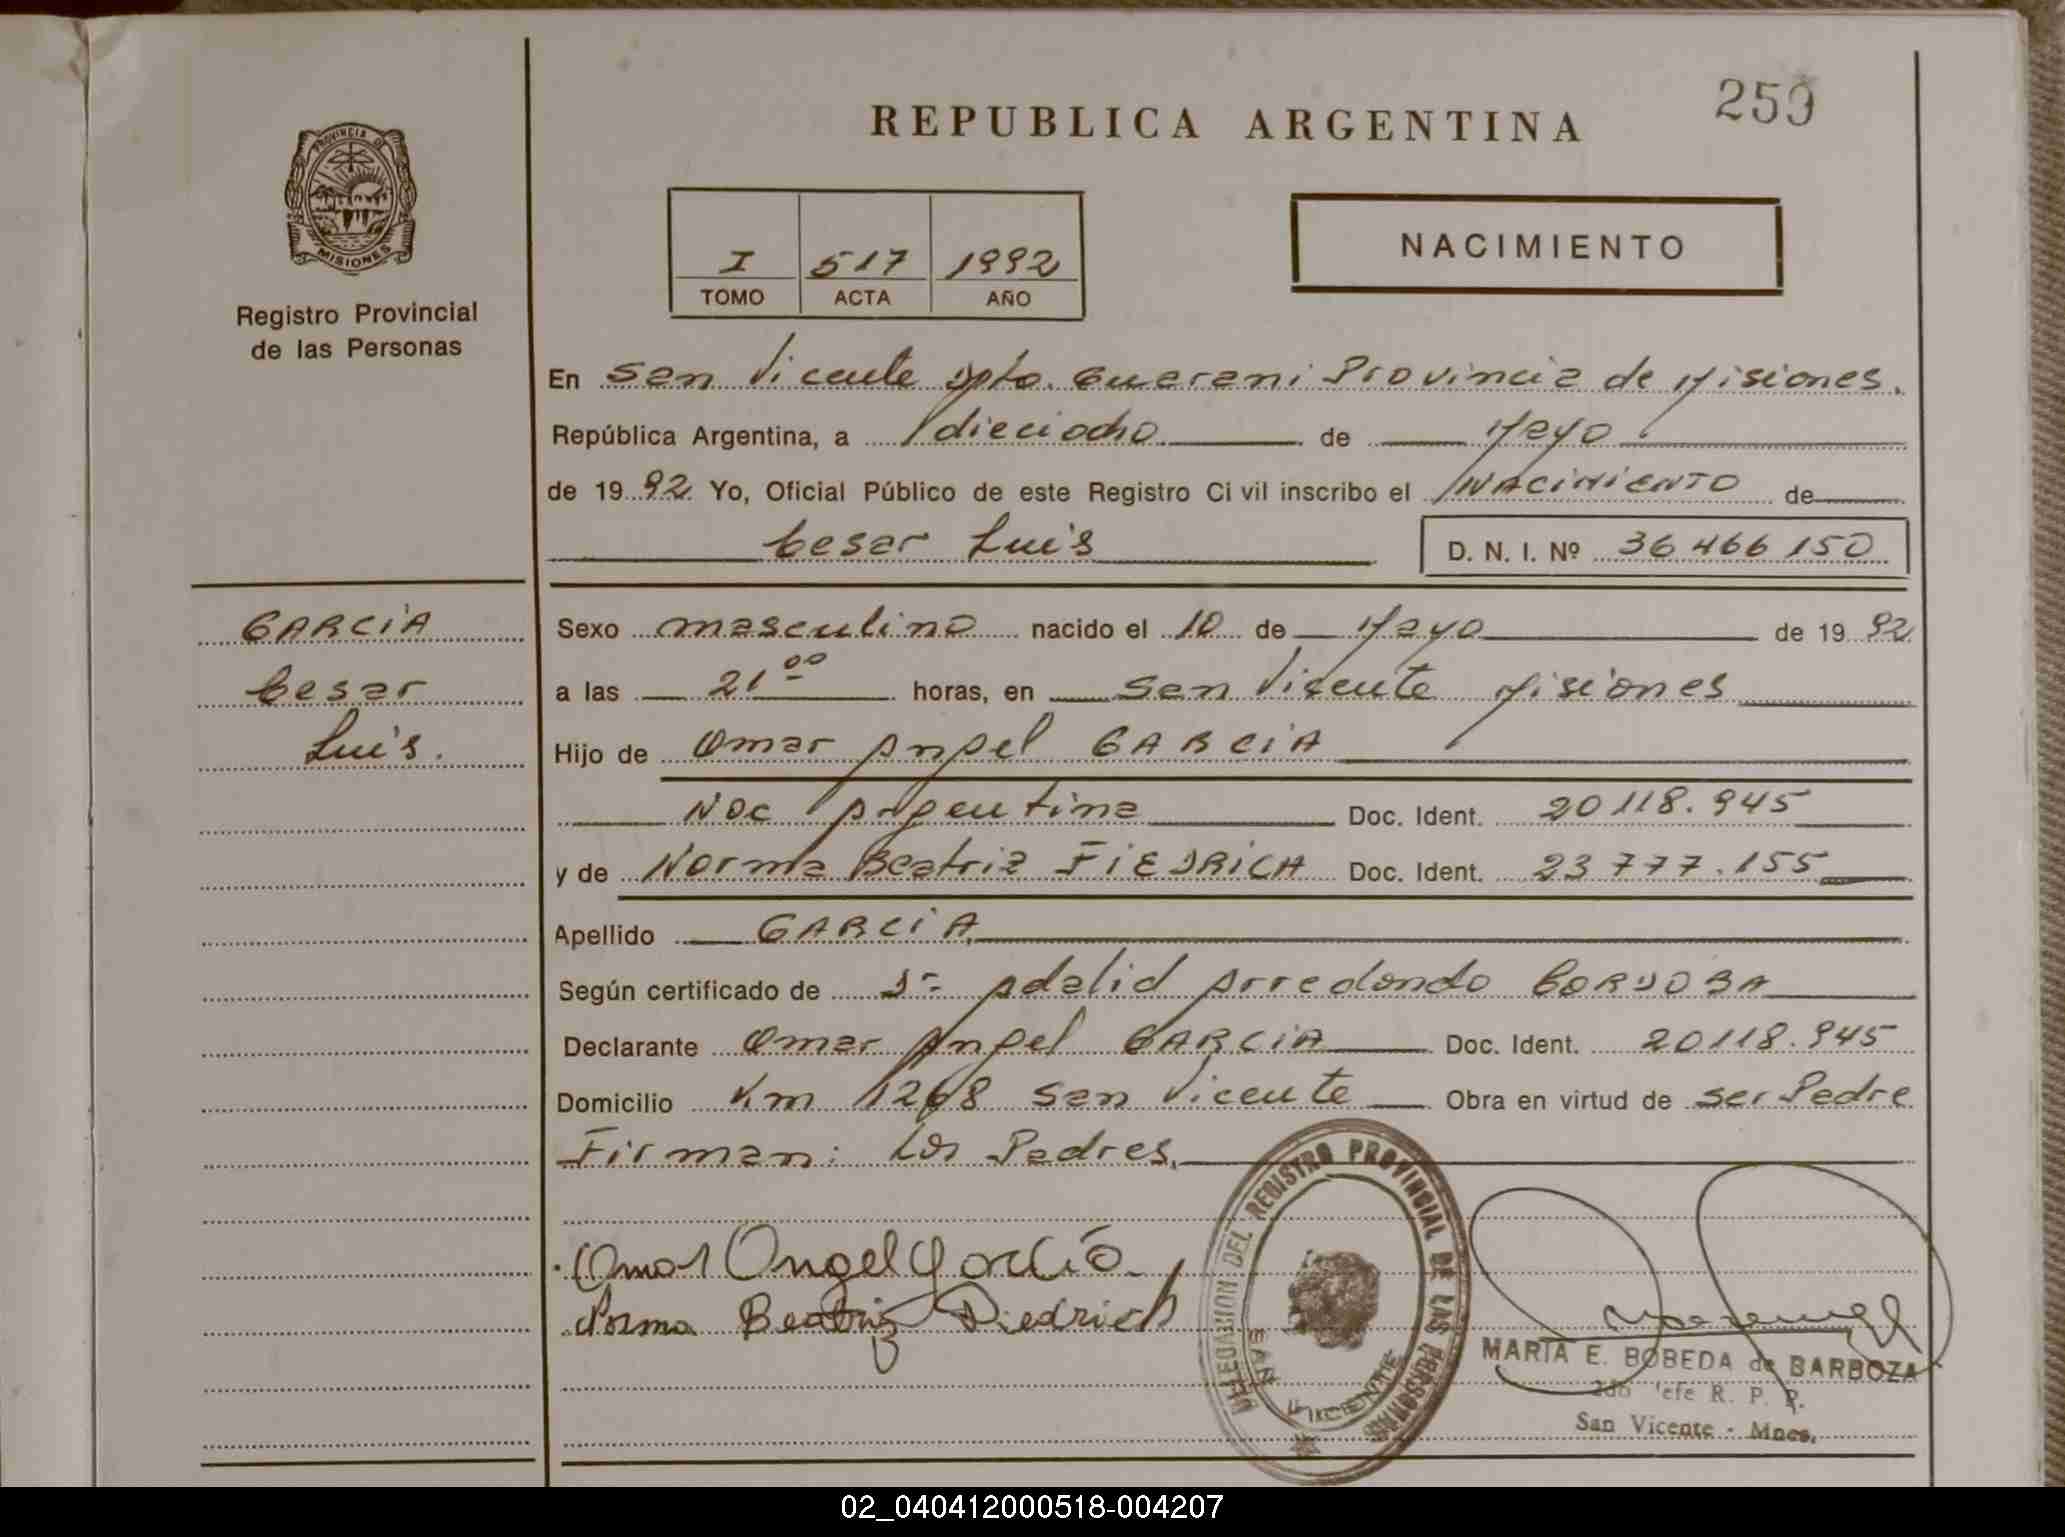 259
REPUBLICA ARGENTINA
PROVINCIA DE
MISIONES
Registro Provincial
de las Personas
I 517 1992
TOMO ACTA AÑO
NACIMIENTO
En San Vicente Dpto. Guarani Provincia de Misiones.
República Argentina, a dieciocho de Mayo
de 1992 Yo, Oficial Público de este Registro Civil inscribo el NACIMIENTO de
Cesar Luis D. N. I. Nº 36466150
GARCIA
Cesar
Luis.
Sexo masculino nacido el 10 de Mayo de 1992
a las 21 00 horas, en San Vicente Misiones
Hijo de Omar Angel GARCIA
Nac Argentina Doc. Ident. 20118.945
y de Norma Beatriz FIEDRICH Doc. Ident. 23777.155
Apellido GARCIA
Según certificado de Dr. Adalid Arredondo CORDOBA
Declarante Omar Angel GARCIA Doc. Ident. 20118.945
Domicilio Km 1268 San Vicente Obra en virtud de ser Padre
Firman: Los Padres.
Omar Angel Garcia
Norma Beatriz Diedrich
DELEGACION DEL REGISTRO PROVINCIAL DE LAS PERSONAS
SAN VICENTE
MARIA E. BOBEDA de BARBOZA
2do Jefe R. P. P.
San Vicente - Mnes.
02_040412000518-004207